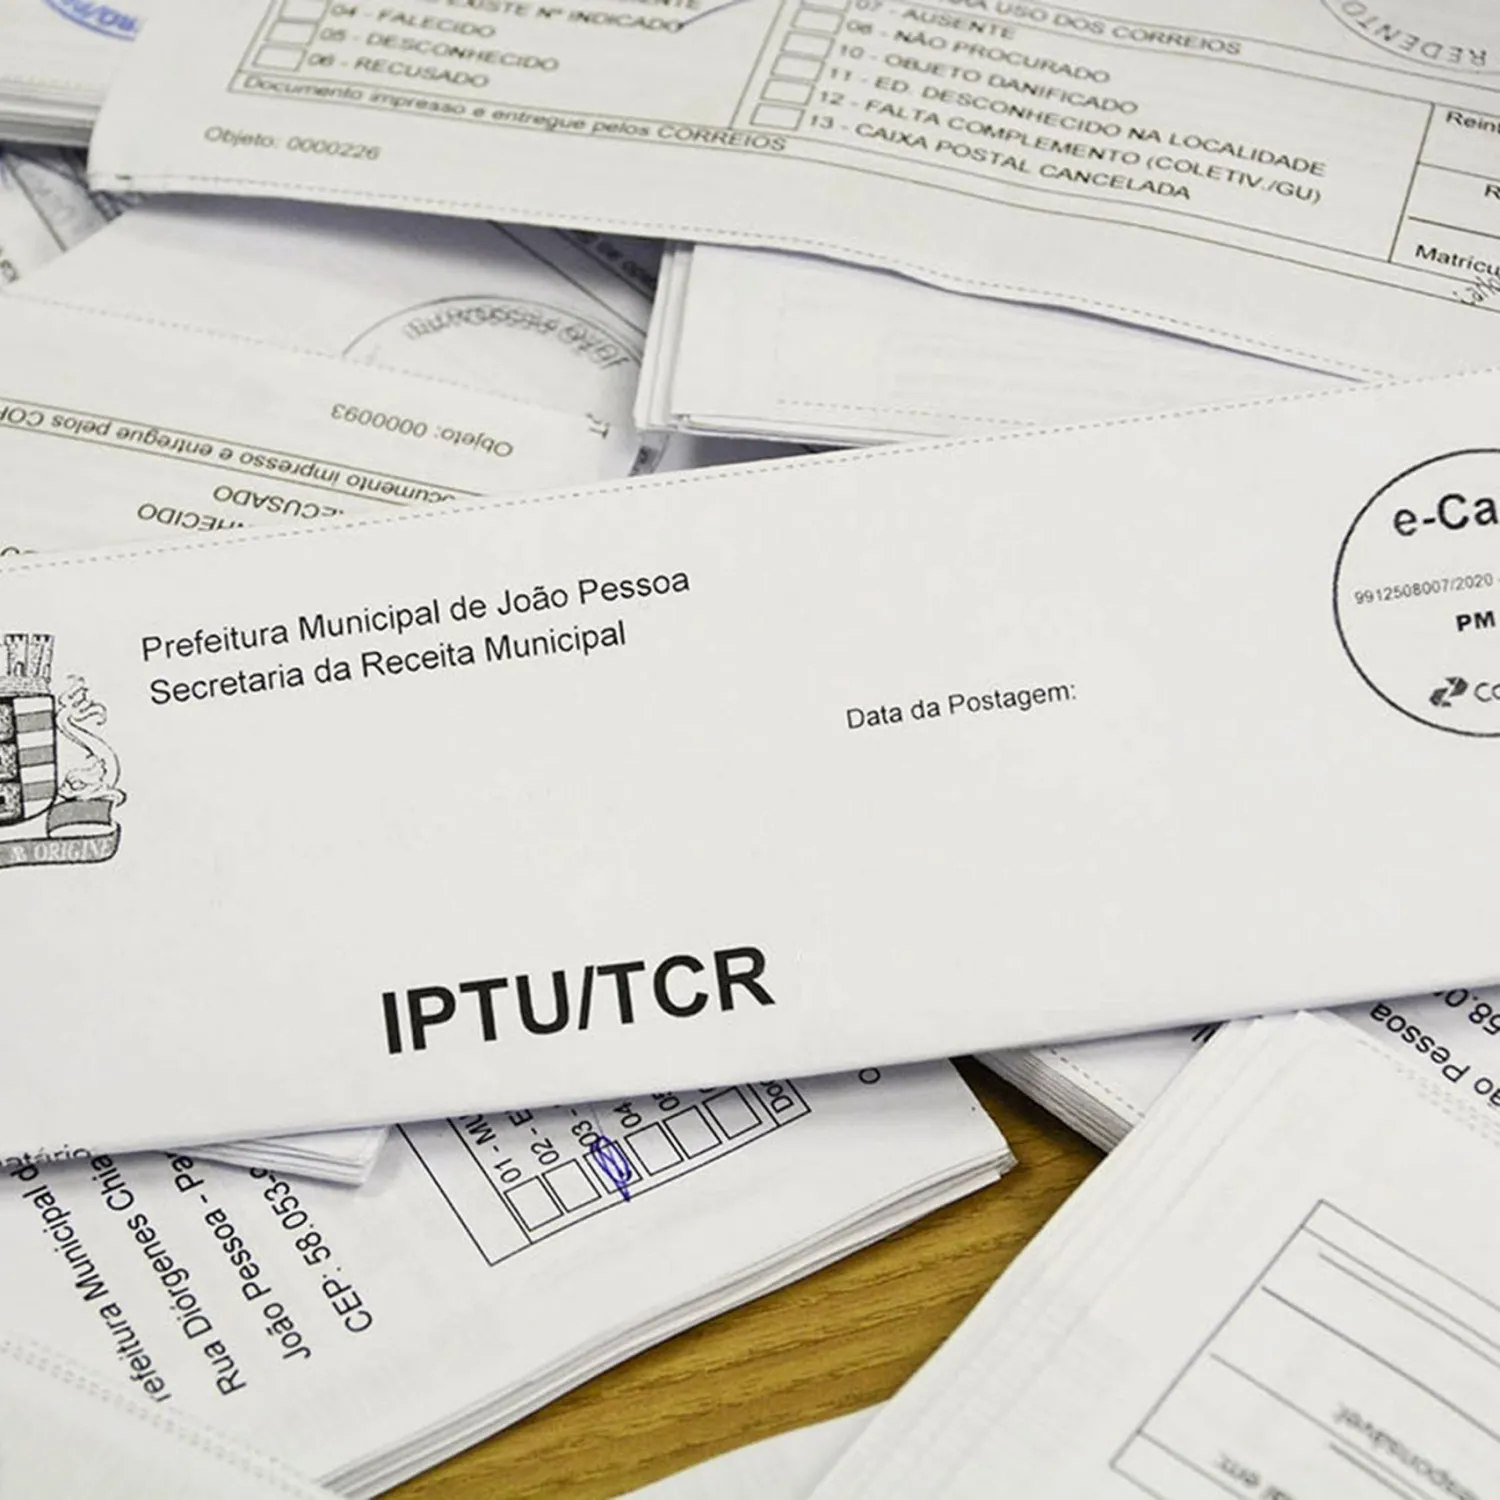 EXISTE Nº INDICADO
04 - FALECIDO
05 - DESCONHECIDO
06 - RECUSADO
Documento impresso e entregue pelos CORREIOS
Objeto: 0000226
USO DOS CORREIOS
07 - AUSENTE
08 - NÃO PROCURADO
10 - OBJETO DANIFICADO
11 - ED. DESCONHECIDO NA LOCALIDADE
12 - FALTA COMPLEMENTO (COLETIV./GU)
13 - CAIXA POSTAL CANCELADA
Rein
R
Matrícu
REDENTO
Objeto: 0000093
cumento impresso e entregue pelos COR
ECUSADO
HECIDO
Prefeitura Municipal de João Pessoa
Secretaria da Receita Municipal
Data da Postagem:
e-Ca
9912508007/2020
PM
Co
ORIGINE
IPTU/TCR
01 - MU
02 - E
03 -
04
05
Doc
O
atário
refeitura Municipal d
Rua Diórgenes Chia
João Pessoa - Pa
CEP: 58.053-
ão Pessoa
58.0
esponsável